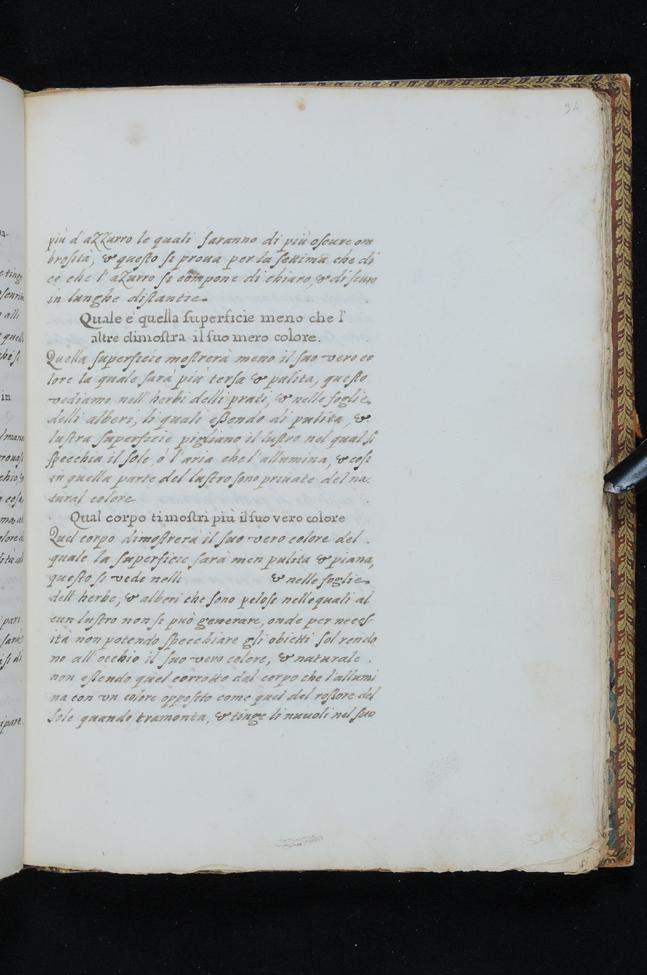 94
più d'azzurro le quali saranno di più oscure om
brosità, & questo si proua per la settima che di
ce che l'azzurro si compone di chiaro, & di scuro
in lunghe distantie.
Quale è quella superficie meno che l'
altre dimostra il suo mero colore.
Quella superficie mostrerà meno il suo vero co
lore la quale sarà più tersa & pulita, questo
vediamo nell'herbi delli prati, & nelle foglie
delli alberi, li quali essendo di pulita, &
lustra superficie pigliano il lustro nel qual si
specchia il sole, o l'aria che l'allumina, & cosi
in quella parte del lustro sono priuate del na-
tural colore
Qual corpo ti mostri più il suo vero colore
Quel corpo dimostrerà il suo vero colore del
quale la superficie sarà men pulita & piana,
questo si vede nelli & nelle foglie
dell'herbe, & alberi che sono pelose nelle quali al
cun lustro non si può generare, onde per neces-
ità non potendo specchiare gli obietti sol rendo
no all'occhio il suo vero colore, & naturale.
non essendo quel corrotto dal corpo che l'allumi
na con vn colore opposito come quel del rossore del
sole quando tramonta, & tinge li nuuoli nel suo